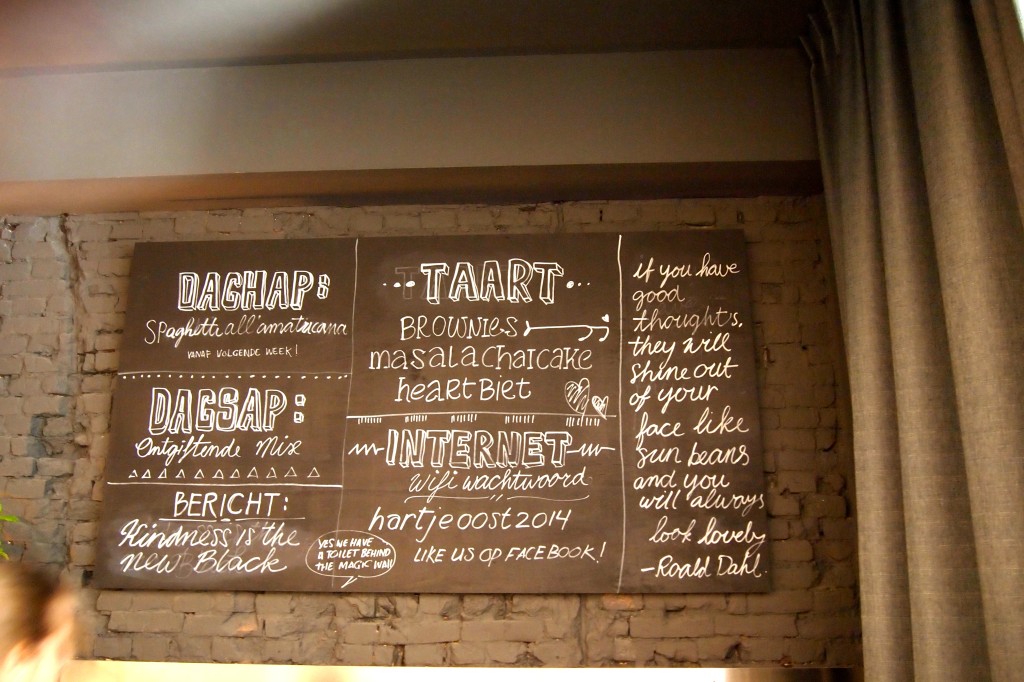 DAGHAP:
Spaghetti all'amatricana
VANAF VOLGENDE WEEK!
DAGSAP:
Ontgiftende Mix
BERICHT:
Kindness is the
new Black
YES WE HAVE
A TOILET BEHIND
THE MAGIC WALL
TAART
BROWNIES
masala chaicake
heartBiet
INTERNET
wifi wachtwoord
hartjeoost2014
LIKE US OP FACEBOOK!
if you have
good
thoughts,
they will
shine out
of your
face like
sun beans
and you
will always
look lovely
-Roald Dahl.